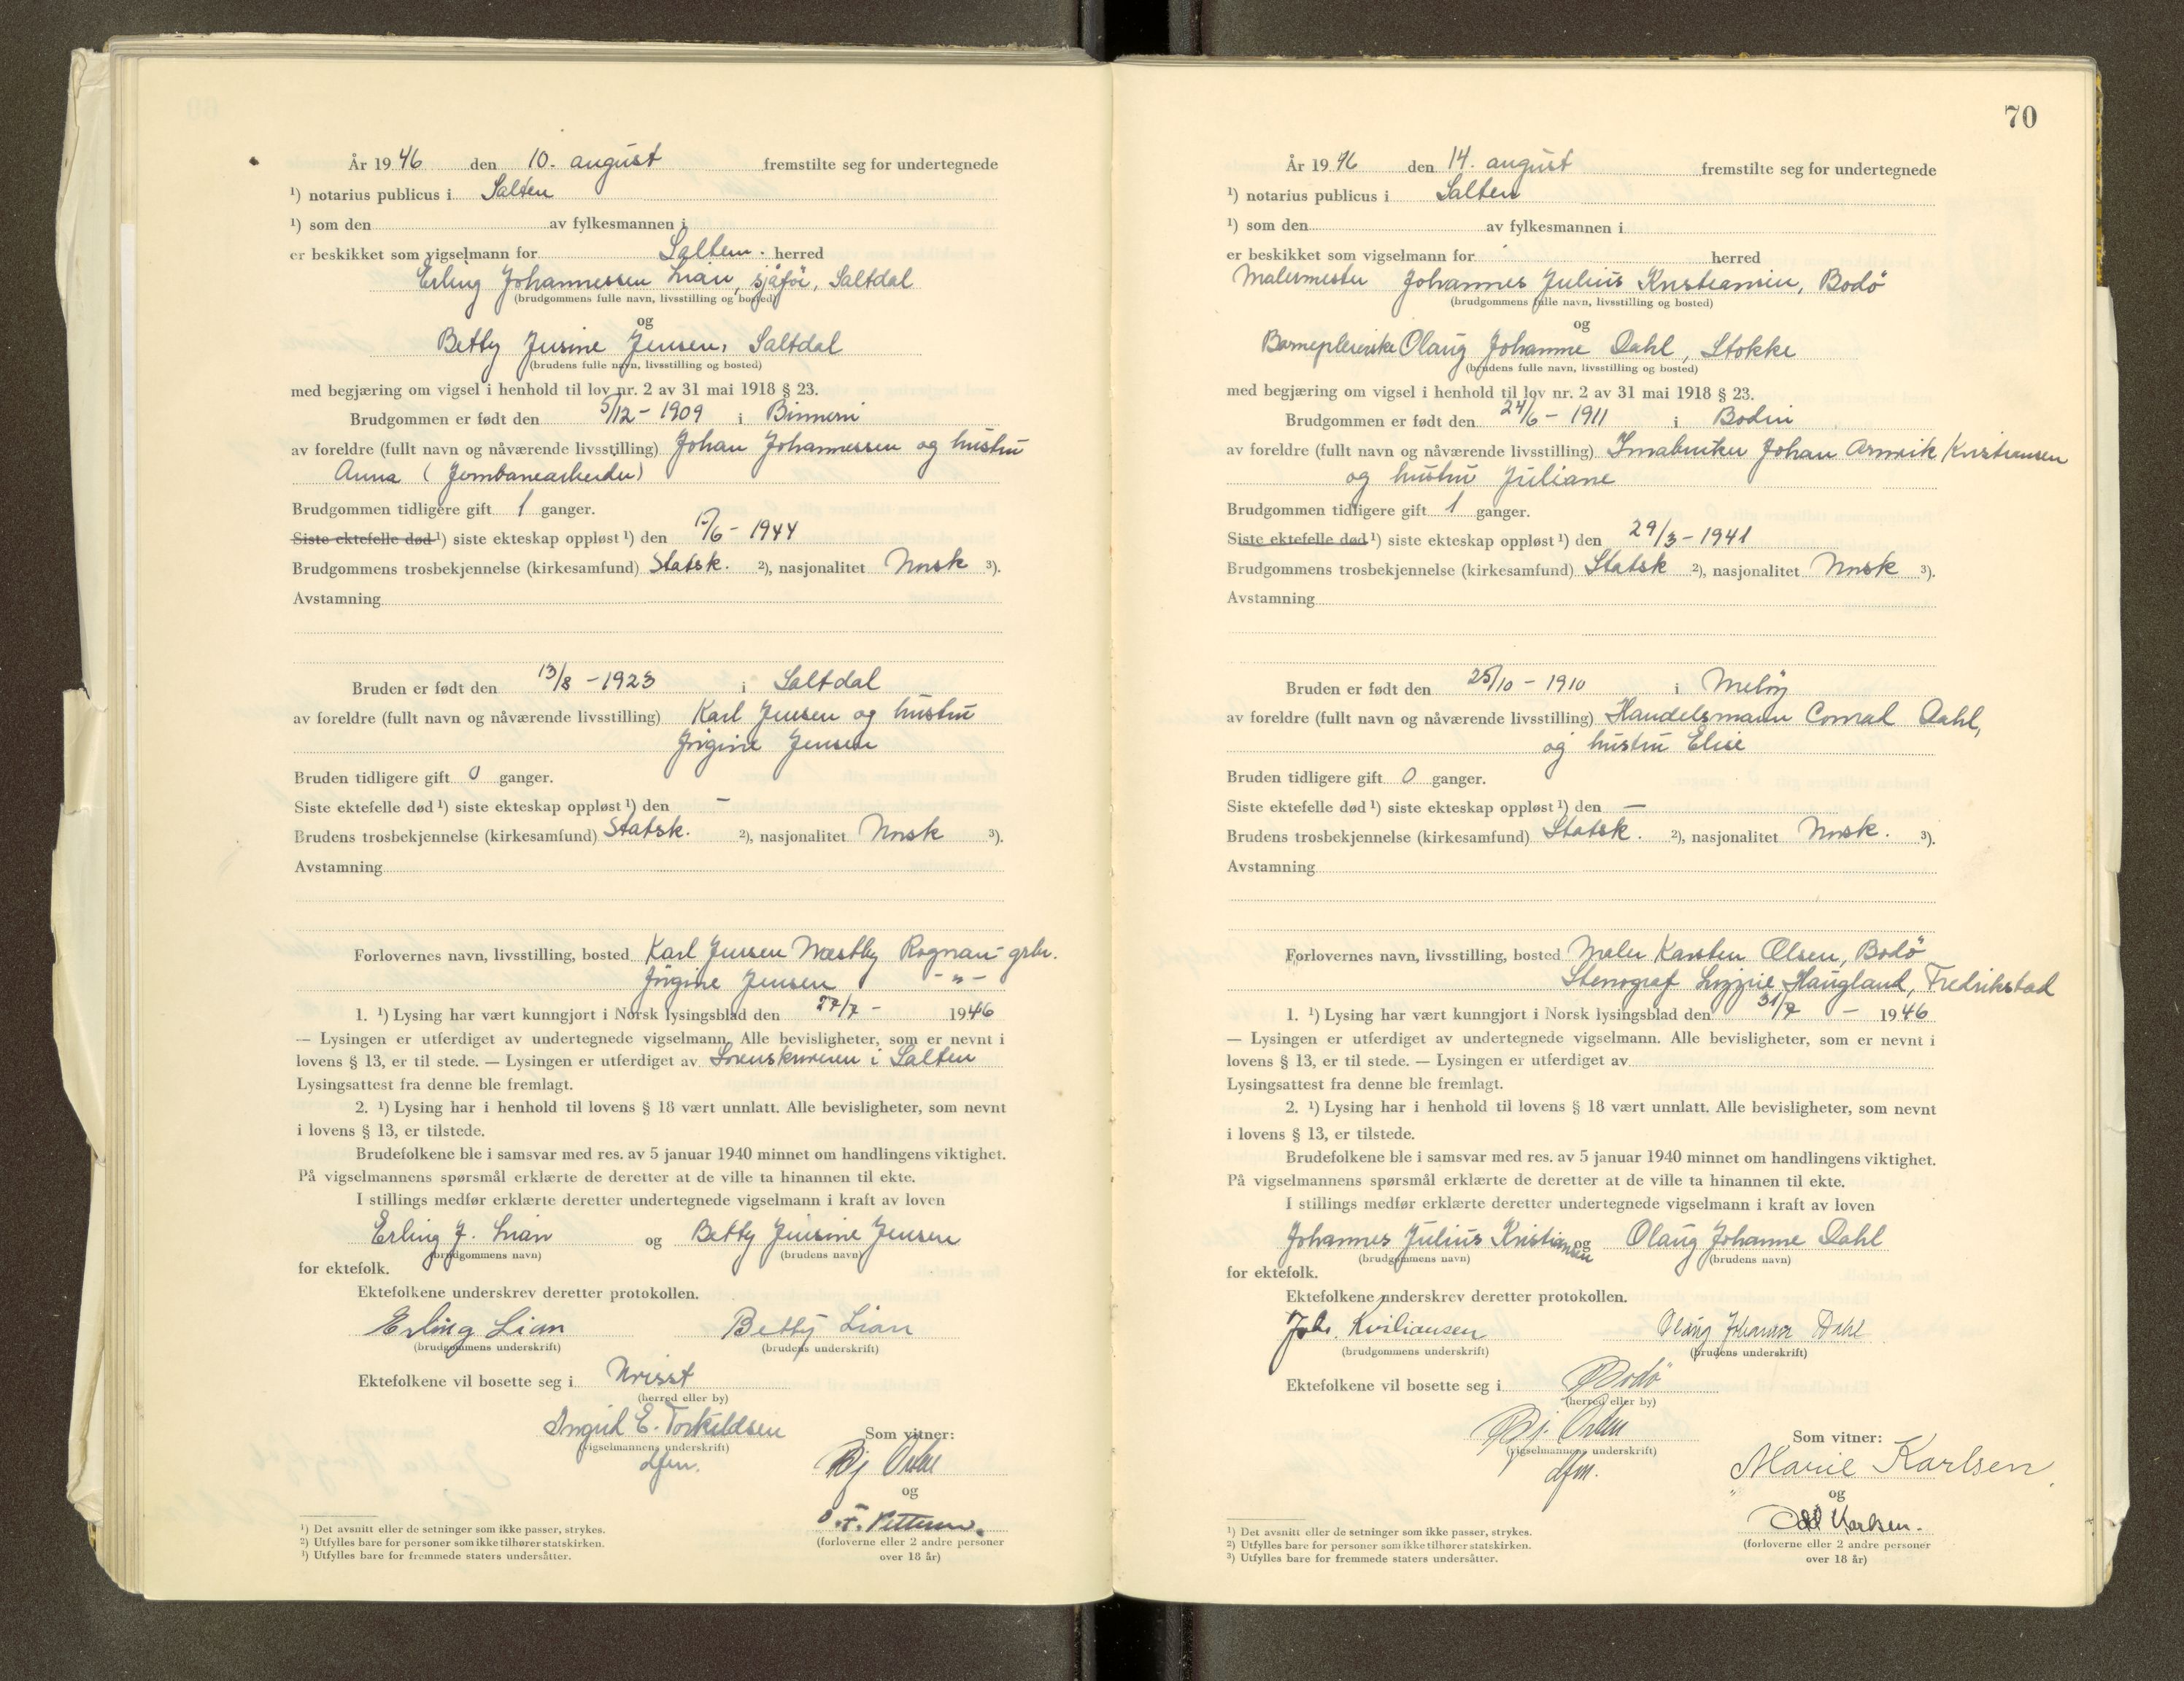 År 1946 den 10. august fremstilte seg for undertegnede
¹) notarius publicus i Salten
¹) som den av fylkesmannen i
er beskikket som vigselmann for Salten. herred
Erling Johannessen Lian, sjåfør, Saltdal
(brudgommens fulle navn, livsstilling og bosted)
og
Betty Jensine Jensen, Saltdal
(brudens fulle navn, livsstilling og bosted)
med begjæring om vigsel i henhold til lov nr. 2 av 31 mai 1918 § 23.
Brudgommen er født den 5/12 - 1909 i
av foreldre (fullt navn og nåværende livsstilling) Johan Johannessen og hustru
Anna (Jernbanearbeider)
Brudgommen tidligere gift 1 ganger.
Siste ektefelle død ¹) siste ekteskap oppløst ¹) den /6 - 1944
Brudgommens trosbekjennelse (kirkesamfund) Statsk. ²), nasjonalitet Norsk ³).
Avstamning
Bruden er født den 13/8 - 1923 i Saltdal
av foreldre (fullt navn og nåværende livsstilling) Karl Jensen og hustru
Jørgine Jensen
Bruden tidligere gift 0 ganger.
Siste ektefelle død ¹) siste ekteskap oppløst ¹) den —
Brudens trosbekjennelse (kirkesamfund) Statsk. ²), nasjonalitet Norsk ³).
Avstamning
Forlovernes navn, livsstilling, bosted Karl Jensen Næstby Rognan grbr.
Jørgine Jensen - " -
1. ¹) Lysing har vært kunngjort i Norsk lysingsblad den 27/7 - 1946
— Lysingen er utferdiget av undertegnede vigselmann. Alle bevisligheter, som er nevnt i
lovens § 13, er til stede. — Lysingen er utferdiget av Sorenskriveren i Salten
Lysingsattest fra denne ble fremlagt.
2. ¹) Lysing har i henhold til lovens § 18 vært unnlatt. Alle bevisligheter, som nevnt
i lovens § 13, er tilstede.
Brudefolkene ble i samsvar med res. av 5 januar 1940 minnet om handlingens viktighet.
På vigselmannens spørsmål erklærte de deretter at de ville ta hinannen til ekte.
I stillings medfør erklærte deretter undertegnede vigselmann i kraft av loven
Erling J. Lian og Betty Jensine Jensen
(brudgommens navn) (brudens navn)
for ektefolk.
Ektefolkene underskrev deretter protokollen.
Erling Lian Betty Lian
(brudgommens underskrift) (brudens underskrift)
Ektefolkene vil bosette seg i
(herred eller by)
Ingrid E. Torkildsen
(vigselmannens underskrift)
dfm.
Som vitner:
Bj
og
(forloverne eller 2 andre personer
over 18 år)
¹) Det avsnitt eller de setninger som ikke passer, strykes.
²) Utfylles bare for personer som ikke tilhører statskirken.
³) Utfylles bare for fremmede staters undersåtter.
70
År 1946 den 14. august fremstilte seg for undertegnede
¹) notarius publicus i Salten
¹) som den av fylkesmannen i
er beskikket som vigselmann for herred
Malermester Johannes Julius Kristiansen, Bodø
(brudgommens fulle navn, livsstilling og bosted)
og
Barnepleierske Olaug Johanne Dahl, Stokke
(brudens fulle navn, livsstilling og bosted)
med begjæring om vigsel i henhold til lov nr. 2 av 31 mai 1918 § 23.
Brudgommen er født den 24/6 - 1911 i Bodin
av foreldre (fullt navn og nåværende livsstilling) Småbruker Johan Kristiansen
og hustru Juliane
Brudgommen tidligere gift 1 ganger.
Siste ektefelle død ¹) siste ekteskap oppløst ¹) den 29/3 - 1941
Brudgommens trosbekjennelse (kirkesamfund) Statsk ²), nasjonalitet Norsk ³).
Avstamning
Bruden er født den 25/10 - 1910 i Meløy
av foreldre (fullt navn og nåværende livsstilling) Handelsmann Conrad Dahl,
og hustru Elise
Bruden tidligere gift 0 ganger.
Siste ektefelle død ¹) siste ekteskap oppløst ¹) den —
Brudens trosbekjennelse (kirkesamfund) Statsk. ²), nasjonalitet Norsk. ³).
Avstamning
Forlovernes navn, livsstilling, bosted Maler Karsten Olsen, Bodø
Stenograf Haugland, Fredrikstad
1. ¹) Lysing har vært kunngjort i Norsk lysingsblad den 31/7 - 1946
— Lysingen er utferdiget av undertegnede vigselmann. Alle bevisligheter, som er nevnt i
lovens § 13, er til stede. — Lysingen er utferdiget av
Lysingsattest fra denne ble fremlagt.
2. ¹) Lysing har i henhold til lovens § 18 vært unnlatt. Alle bevisligheter, som nevnt
i lovens § 13, er tilstede.
Brudefolkene ble i samsvar med res. av 5 januar 1940 minnet om handlingens viktighet.
På vigselmannens spørsmål erklærte de deretter at de ville ta hinannen til ekte.
I stillings medfør erklærte deretter undertegnede vigselmann i kraft av loven
Johannes Julius Kristiansen og Olaug Johanne Dahl
(brudgommens navn) (brudens navn)
for ektefolk.
Ektefolkene underskrev deretter protokollen.
Johs. Kristiansen Olaug Johanne Dahl
(brudgommens underskrift) (brudens underskrift)
Ektefolkene vil bosette seg i Bodø
(herred eller by)
Bj.
(vigselmannens underskrift)
dfm.
Som vitner:
Marie Karlsen
og
Odd Karlsen.
(forloverne eller 2 andre personer
over 18 år)
¹) Det avsnitt eller de setninger som ikke passer, strykes.
²) Utfylles bare for personer som ikke tilhører statskirken.
³) Utfylles bare for fremmede staters undersåtter.